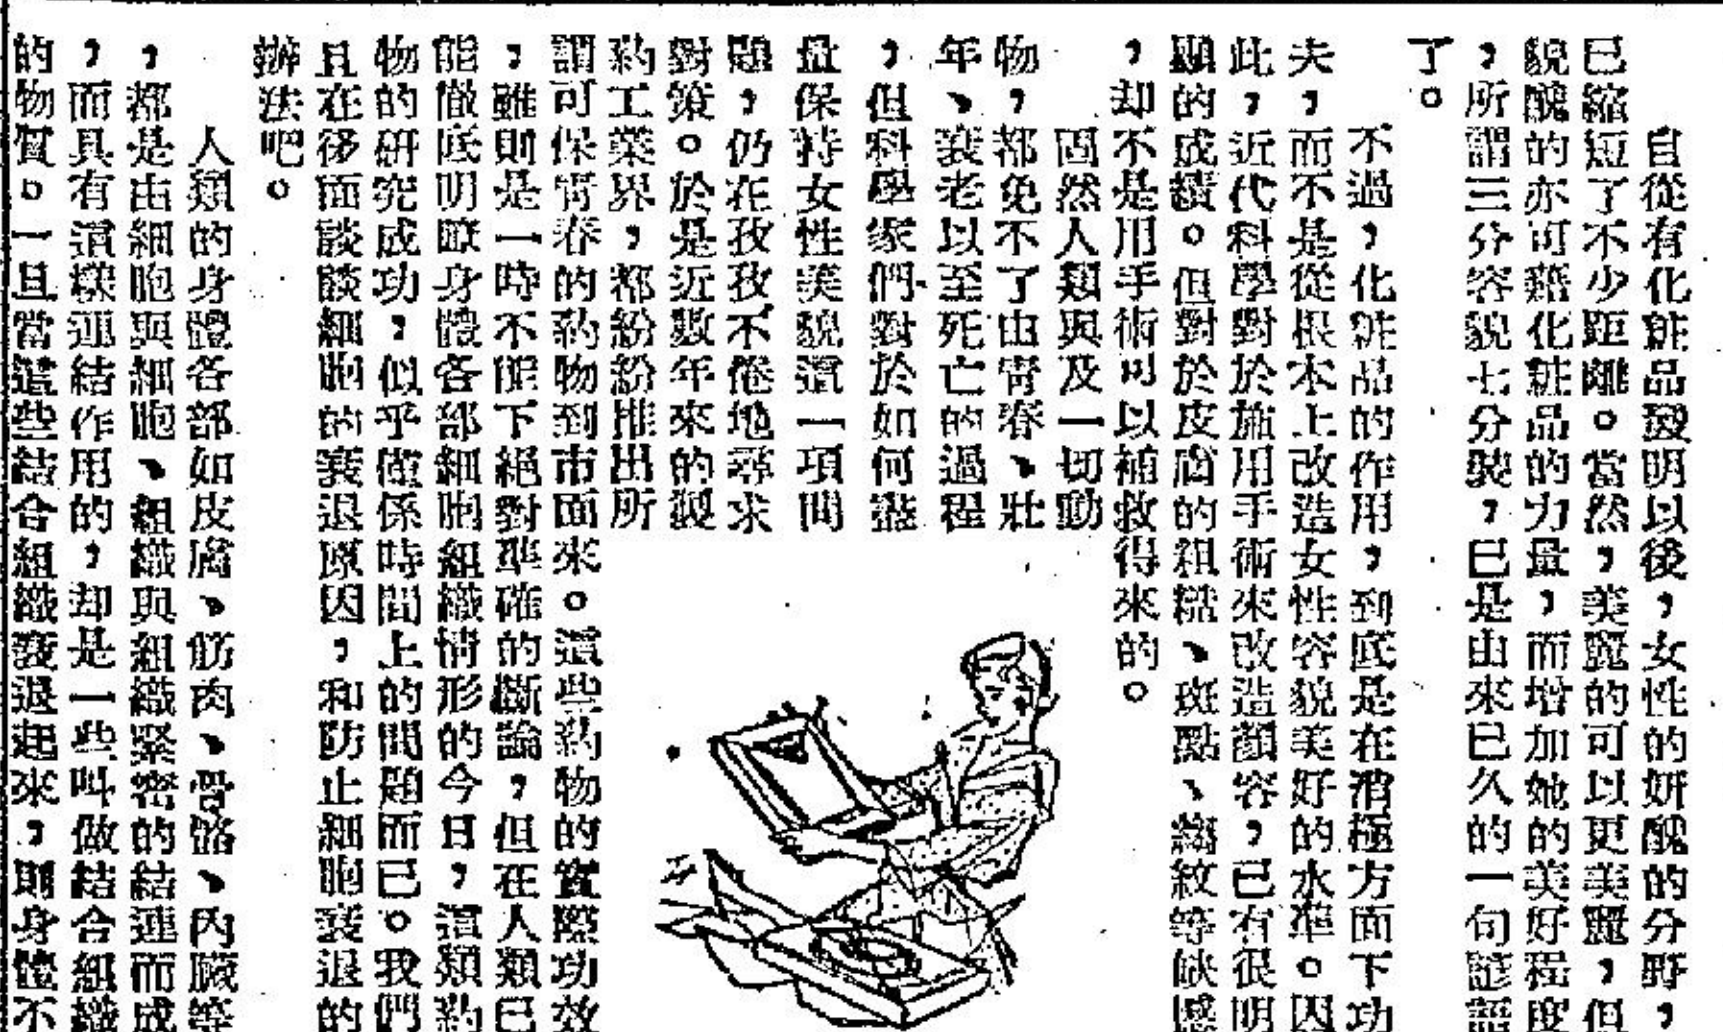 自從有化粧品發明以後，女性的妍醜的分野，
已縮短了不少距離。當然，美麗的可以更美麗，但
貌醜的亦可藉化粧品的力量，而增加她的美好程度
，所謂三分容貌七分裝，已是由來已久的一句諺語
了。
不過，化粧品的作用，到底是在消極方面下功
夫，而不是從根本上改造女性容貌美好的水準。因
此，近代科學對於施用手術來改造顏容，已有很明
顯的成績。但對於皮膚的粗糙、斑點、縐紋等缺憾
，却不是用手術可以補救得來的。
固然人類與及一切動
物，都免不了由青春、壯
年、衰老以至死亡的過程
，但科學家們對於如何盡
量保持女性美貌這一項問
題，仍在孜孜不倦地尋求
對策。於是近數年來的製
葯工業界，都紛紛推出所
謂可保青春的葯物到市面來。這些葯物的實際功效
，雖則是一時不能下絕對準確的斷論，但在人類已
能徹底明瞭身體各部細胞組織情形的今日，這類葯
物的研究成功，似乎僅係時間上的問題而已。我們
且在後面談談細胞的衰退原因，和防止細胞衰退的
辦法吧。
人類的身體各部如皮膚、筋肉、骨骼、內臟等
，都是由細胞與細胞、組織與組織緊密的結連而成
，而具有這樣連結作用的，却是一些叫做結合組織
的物質。一旦當這些結合組織衰退起來，則身體不